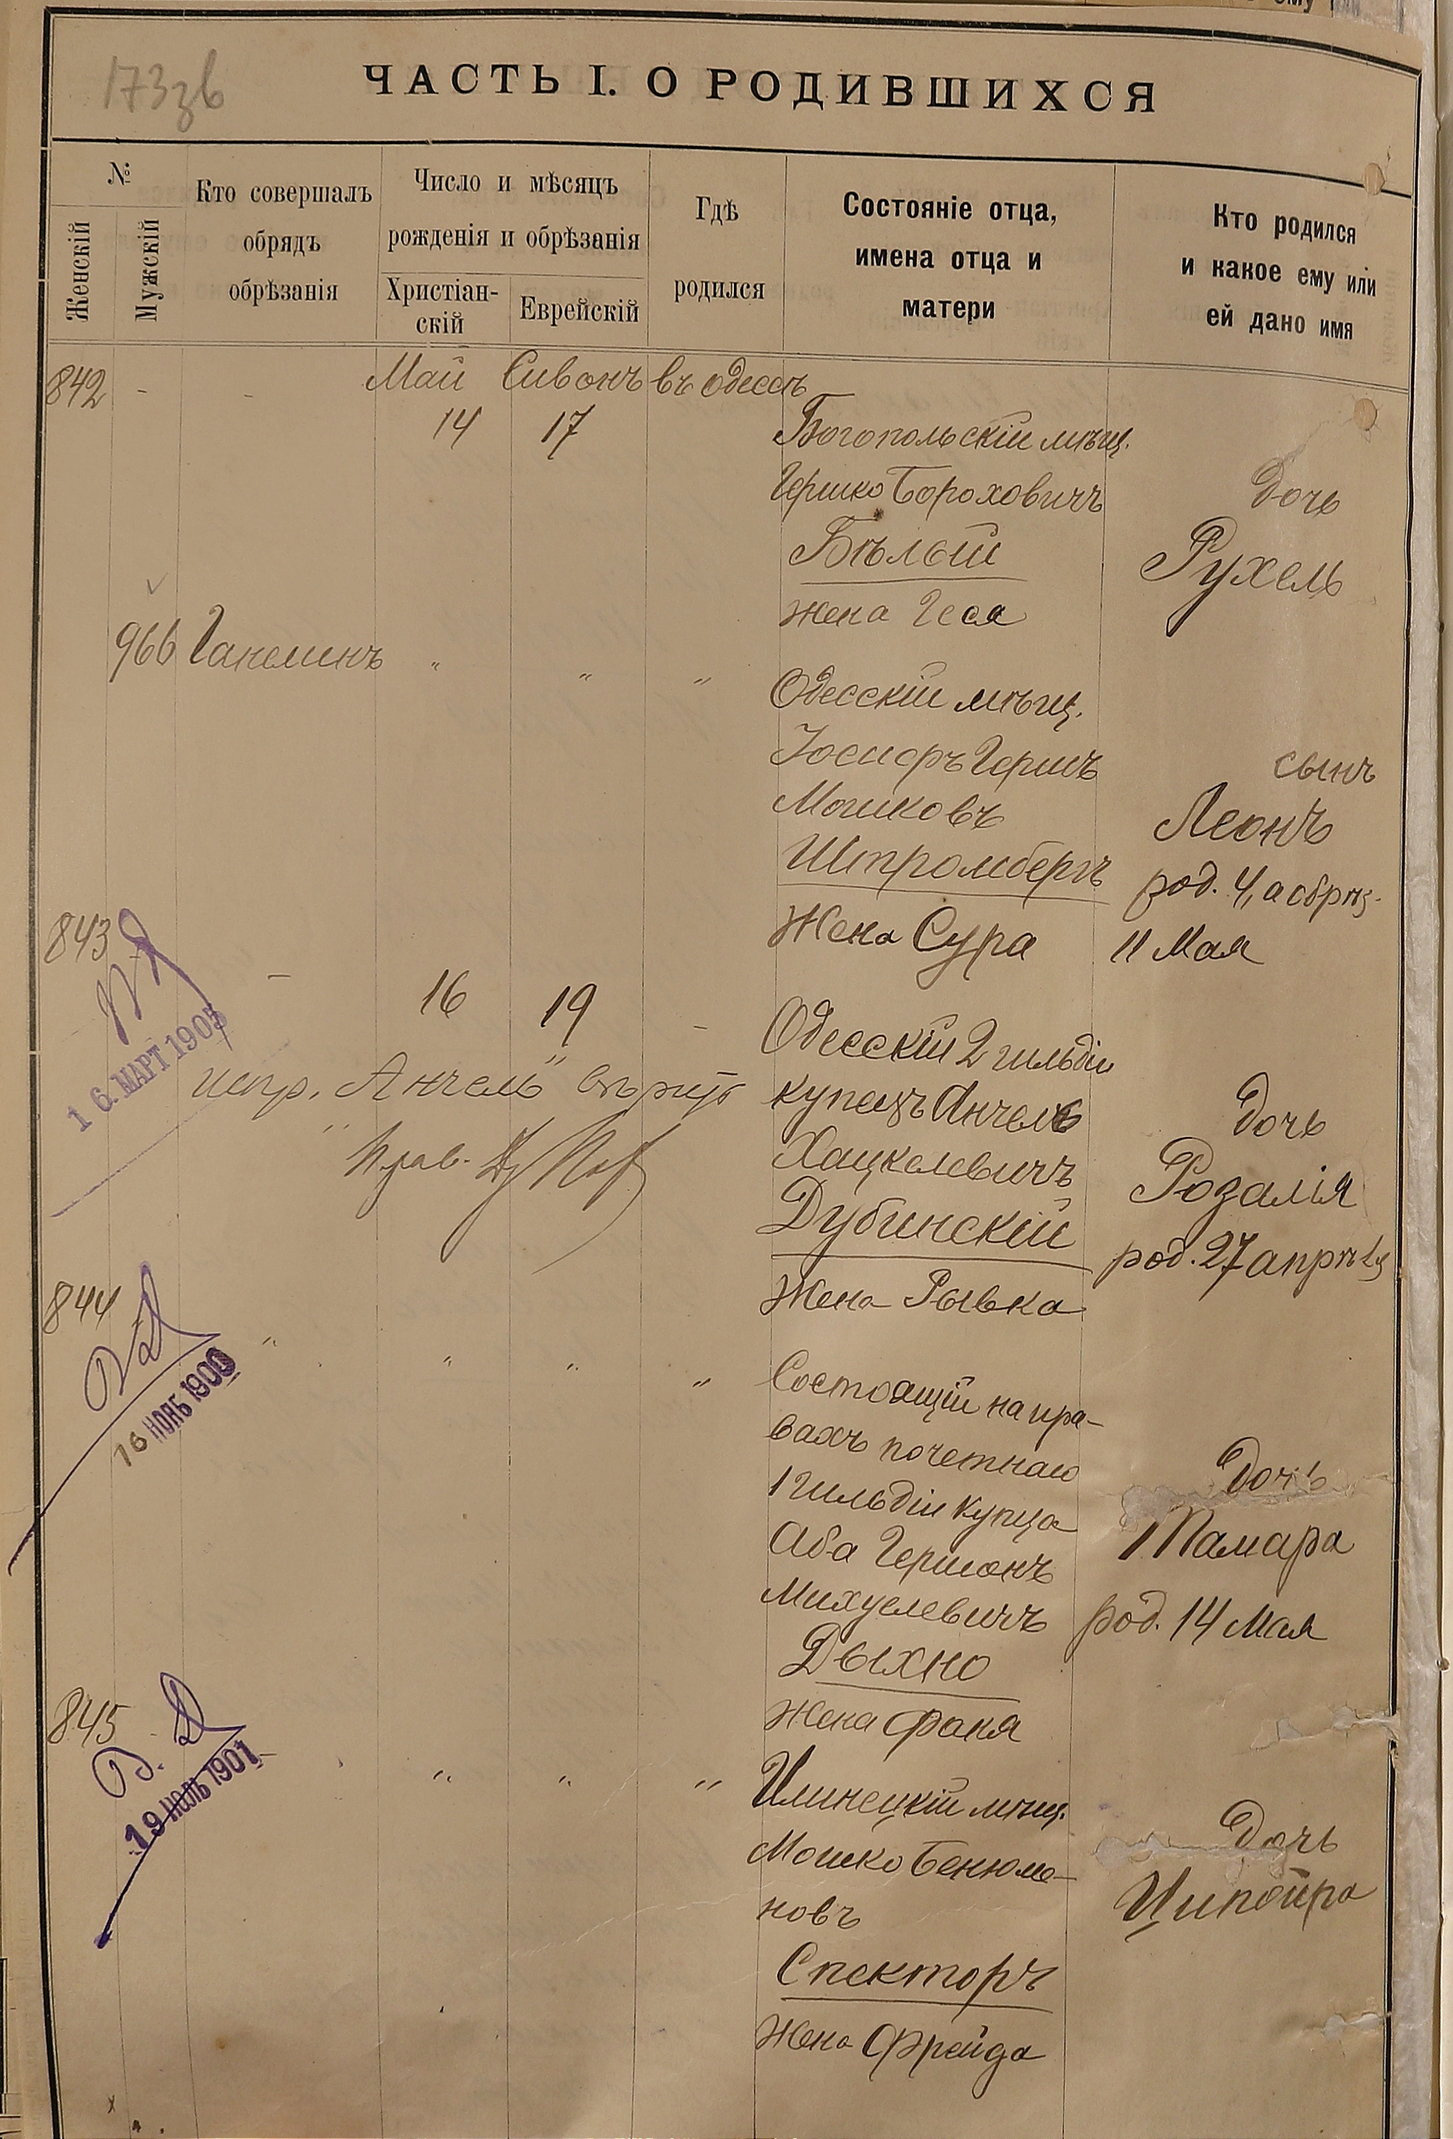 173зв
ЧАСТЬ I. О РОДИВШИХСЯ
№
Женскій
Мужскій
Кто совершалъ
обрядъ
обрѣзанія
Число и мѣсяцъ
рожденія и обрѣзанія
Христіан-
скій
Еврейскій
Гдѣ
родился
Состояніе отца,
имена отца и
матери
Кто родился
и какое ему или
ей дано имя
842 - - Май Сивонъ въ Одессѣ
14 17
Богопольскій мѣщ.
Гершко Борохoвичъ
Бѣлый
жена Геся
дочь
Рухель
966 Ганелинъ " " "
Одесскій мѣщ.
Іосифъ Гершъ
Мошковъ
Штромбергъ
Жена Сура
сынъ
Леонъ
род. 4, а обрѣз.
11 Мая
843 - 16 19 -
16 МАРТ 1905
испр. "Анчель" вѣрить
Одесскій 2 гильдіи
купецъ Анчель
Хацкелевичъ
Дубинскій
Жена Рывка
дочь
Розалія
род. 27 апрѣля
844 " " " "
16 НОЯБ 1900
Состоящій на пра-
вахъ почетнаго
1 гильдіи купца
Аба Гершонъ
Михуелевичъ
Дыхно
Жена Фаня
дочь
Тамара
род. 14 Мая
845 - " " "
19 ИЮЛЬ 1901
Илинецкій мѣщ.
Мошко Бенюме-
новъ
Спекторъ
Жена Фрейда
дочь
Ципойра